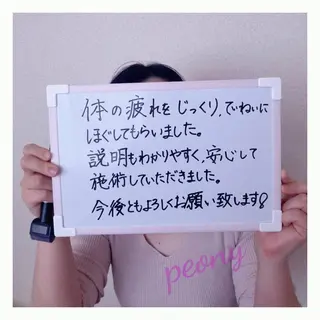 体の疲れをじっくり、ていねいに
ほぐしてもらいました。
説明もわかりやすく、安心して
施術していただきました。
今後ともよろしくお願い致します♡
peony